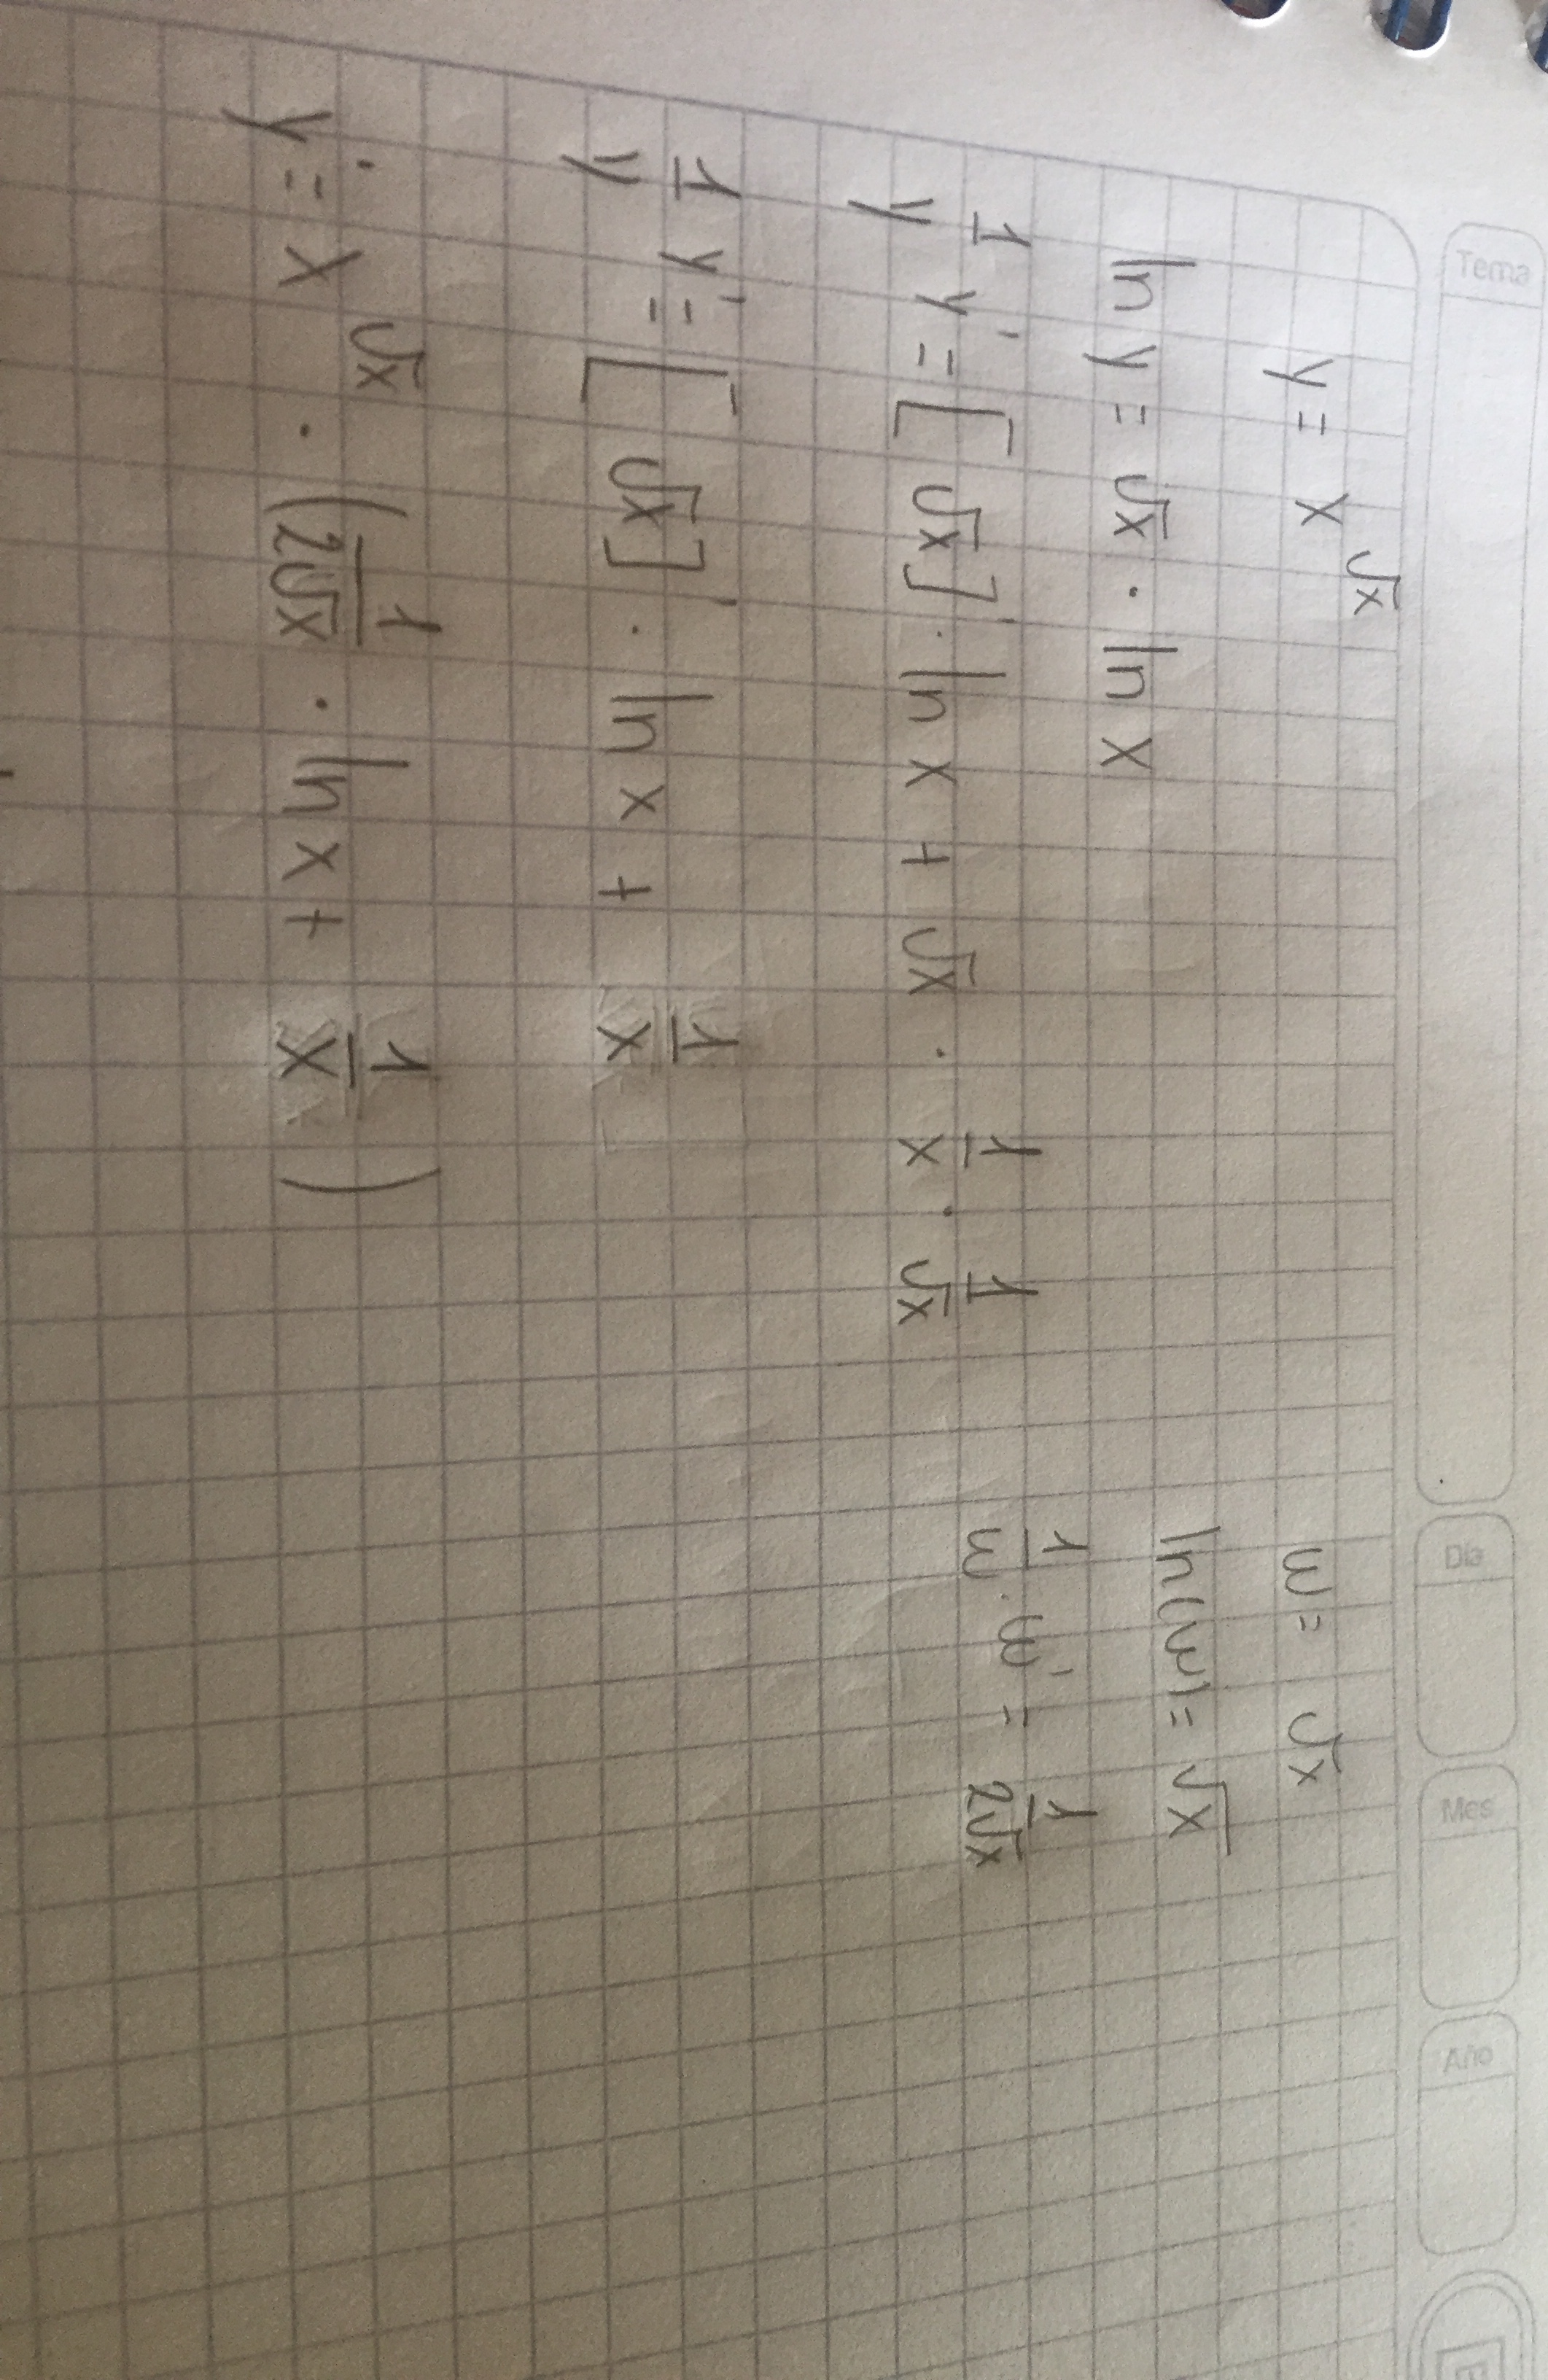 Tema Día Mes Año
y = x^√x
ln y = √x · ln x
1/y y' = [√x]' · ln x + √x · 1/x · 1/√x
1/y y' = [√x]' · ln x + 1/x
y' = x^√x · (1/2√x · ln x + 1/x)
w = √x
ln(w) = √x
1/w · w' = 1/2√x